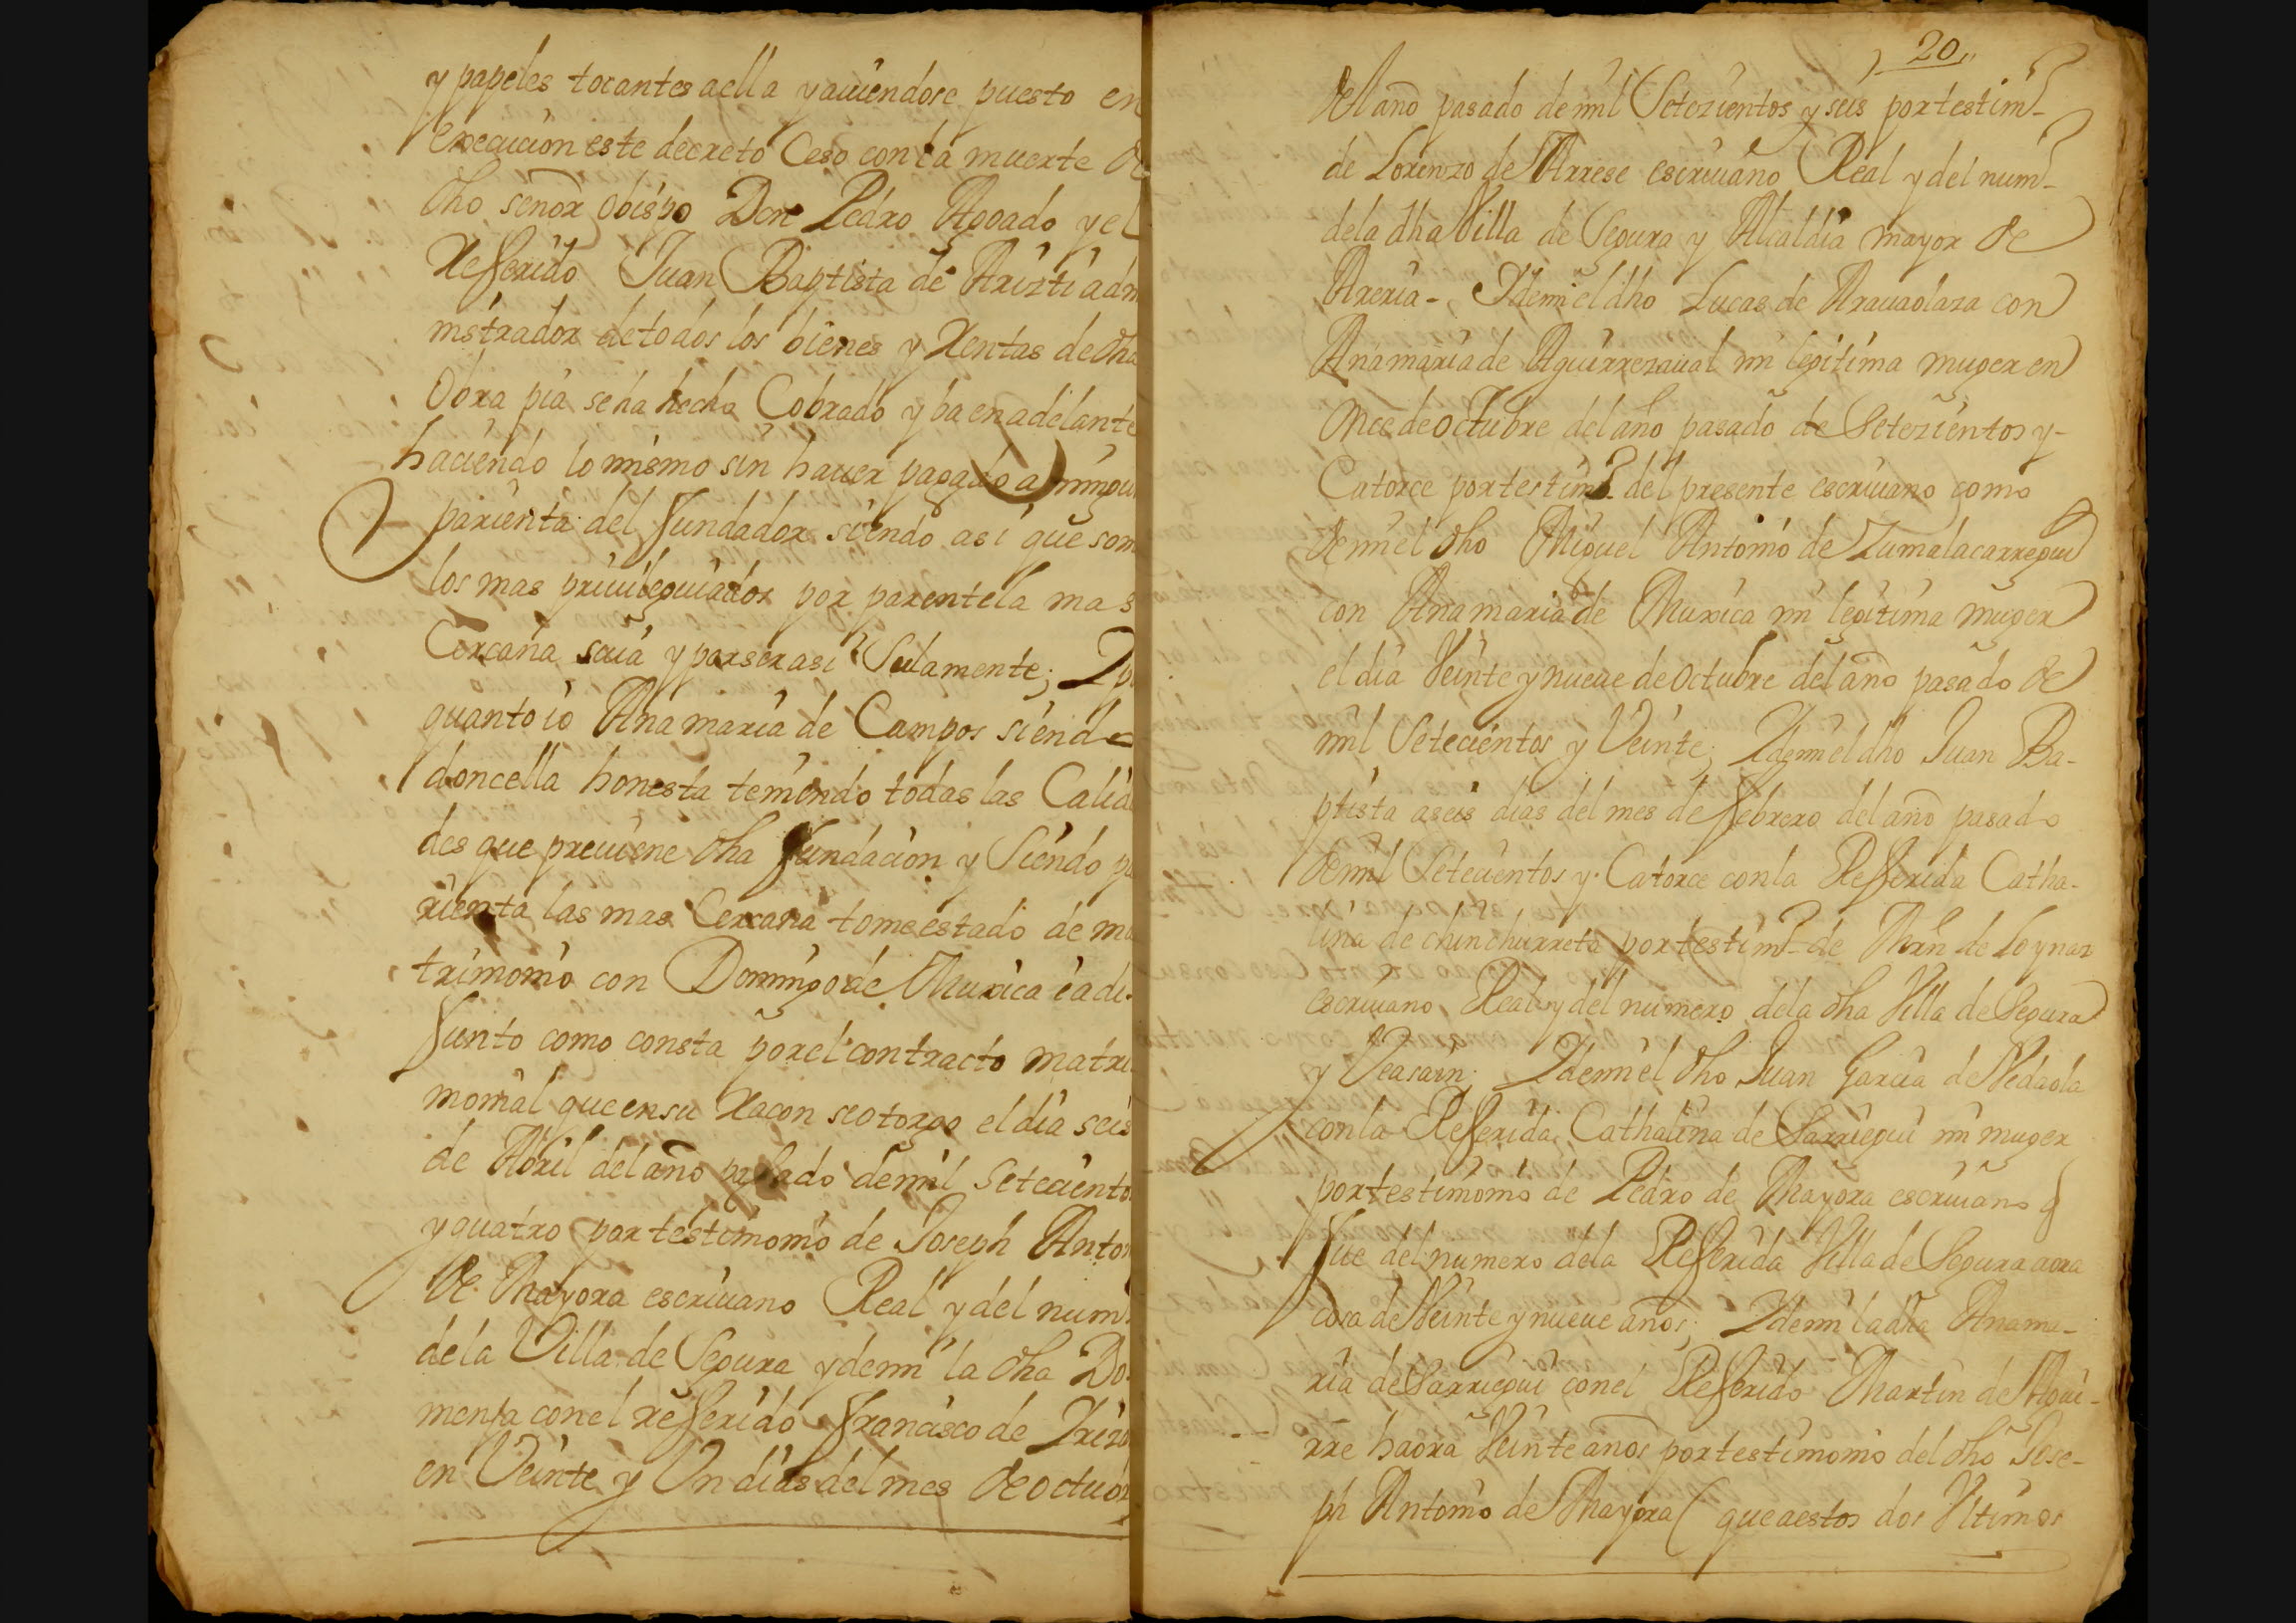 y papeles tocantes aella y auiendose puesto en
execucion este decreto Ceso con la muerte de
dho señor obispo Don Pedro Aguado y el
Refferido Juan Baptista de Arizti adm
nistrador de todos los bienes y Rentas de dha
Obra pia se ha hecho Cobrado y ba en adelante
haciendo lo mismo sin hauer pagado a ningu
parienta del fundador siendo asi que som
los mas priuileguiados por parentela mas
Cercana suia y por ser asi Solamente; Y p
quanto io Ana maria de Campos siendo
doncella honesta teniendo todas las Calida
des que preuiene dha fundacion y Siendo pa
rienta las mas Cercana tome estado de ma
trimonio con Domingo de Muxica ia di
funto como consta por el contracto matri
monial que en su Raçon se otorgo el dia seis
de Abril del año passado de mil setecientos
y quatro por testimonio de Joseph Anton
de Mayora escriuano Real y del num
de la Villa de Segura y de mi la dha Do
menja con el refferido francisco de Yriza
en Veinte y Un dias del mes de octub
20,,
del año pasado de mil Setezientos y seis por testim-
de Lorenzo de Arrese escriuano Real y del num-
de la dha Villa de Segura y Alcaldia mayor de
Areria - Y de mi el dho Lucas de Arauaolaza con
Ana maria de Aguirrezaual mi legitima muger en
once de octubre del año pasado de Setezientos y-
Catorce por testim- del presente escriuano como
de mi el dho Miguel Antonio de Zumalacarregui
con Ana maria de Muxica mi legitima muger
el dia Veinte y nueue de octubre del año pasado de
mil Setecientos y Veinte; Y de mi el dho Juan Ba-
ptista a seis dias del mes de febrero del año pasado
de mil Setecientos y Catorce con la Refferida Catha-
lina de chinchurreta por testim- de Mrn de Loynaz
escriuano Real y del numero de la dha Villa de Segura
y Veasain; Y de mi el dho Juan Garcia de Vedaola
con la Refferida Cathalina de Sarriegui mi muger
por testimonio de Pedro de Mayora escriuano q
fue del numero de la Refferida Villa de Segura aora
cosa de Veinte y nueue años; Y de mi la dha Anama-
ria de Sarriegui con el Refferido Martin de Agui-
rre haora Veinte años por testimonio del dho Jose-
ph Antonio de Mayora (que a estos dos Vltimos